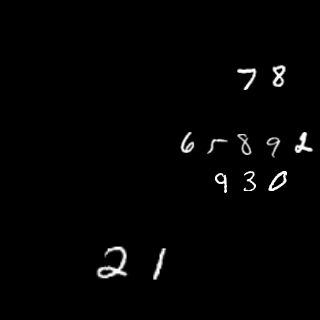 78
65892
930
21